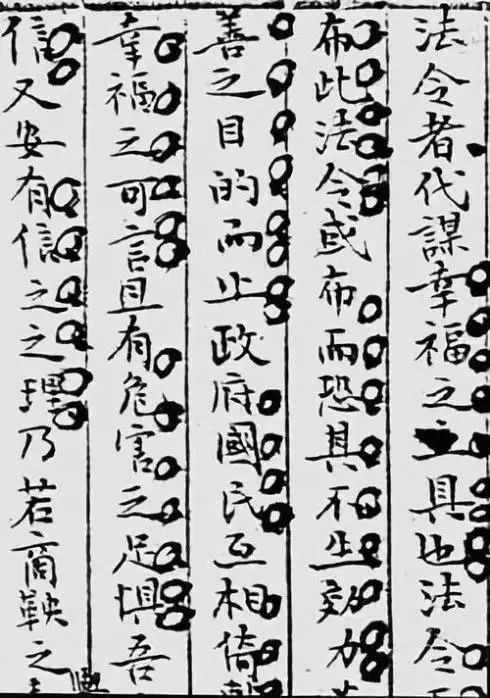 法令者代謀幸福之具也法令
布此法令或布而恐其不生効力
善之目的而止政府國民互相倚
幸福之可言且有危害之足惧吾
信又安有信之之理乃若商鞅之